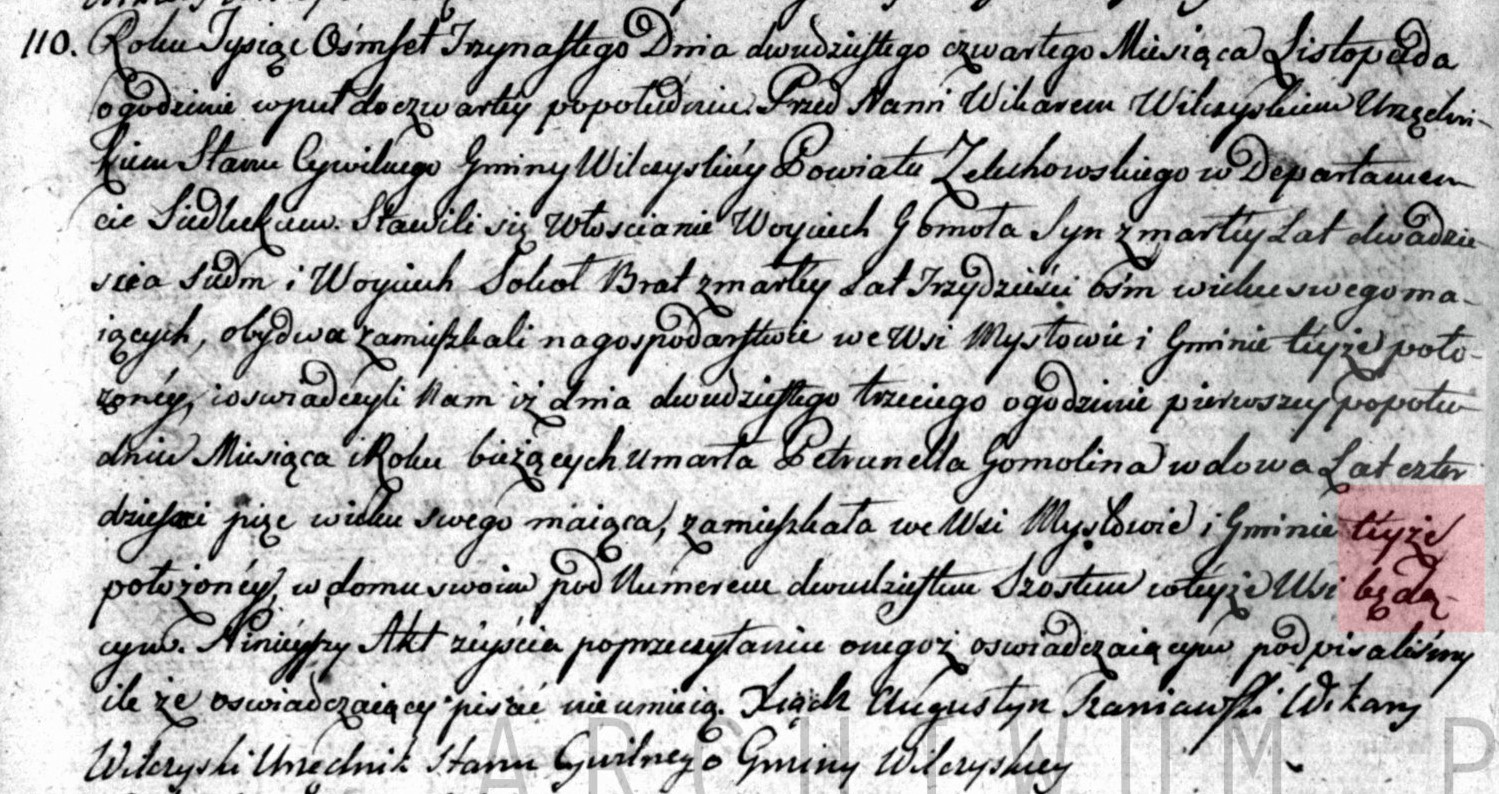 110. Roku Tysiąc Ośmset Trzynastego Dnia dwudziestego czwartego Miesiąca Listopada
ogodzinie wpuł doczwartey popołudniu. Przed Nami Wikarem Wilczyskiem Urzędni-
kiem Stanu Cywilnego Gminy Wilczyskiéy Powiatu Zelechowskiego w Departamen-
cie Siedleckiem. Stawili się Włoscianie Woyciech Gomoła Syn zmarłey Lat dwadzie-
scia siedm i Woyciech Sokoł Brat zmarłey Lat Trzydzieści ośm wieku swego ma-
iących, obydwa zamieszkali nagospodarstwie we Wsi Mysłowie i Gminie téyże poło-
żonéy, ioswiadczyli Nam iż dnia dwudziestego trzeciego ogodzinie pierwszey popołu
dniu Miesiąca iRoku bieżących umarła Petrunella Gomolina wdowa Lat czter
dzieści pięc wieku swego maiąca, zamieszkała we Wsi Mysłowie i Gminie téyże
położonéy, w domu swoim pod Numerem dwudziestem Szostem wtéyże Wsi będą-
cym. Ninieyszy Akt zéyścia poprzeczytaniu onegoż oswiadczaiącym podpisaliśmy
ile że oswiadczaiący pisać nieumieią. Xiądz Augustyn Wikary
Wilczyski Urzędnik Stanu Cywilnego Gminy Wilczyskiey
ARCHIWUM P